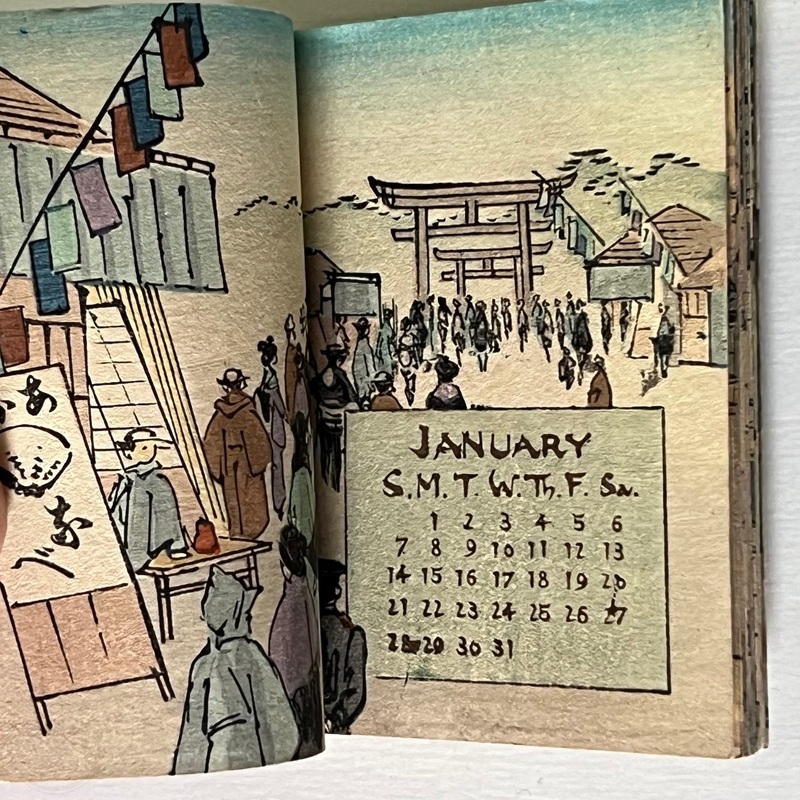 あ
なべ
JANUARY
S. M. T. W. Th. F. Sa.
1 2 3 4 5 6
7 8 9 10 11 12 13
14 15 16 17 18 19 20
21 22 23 24 25 26 27
28 29 30 31